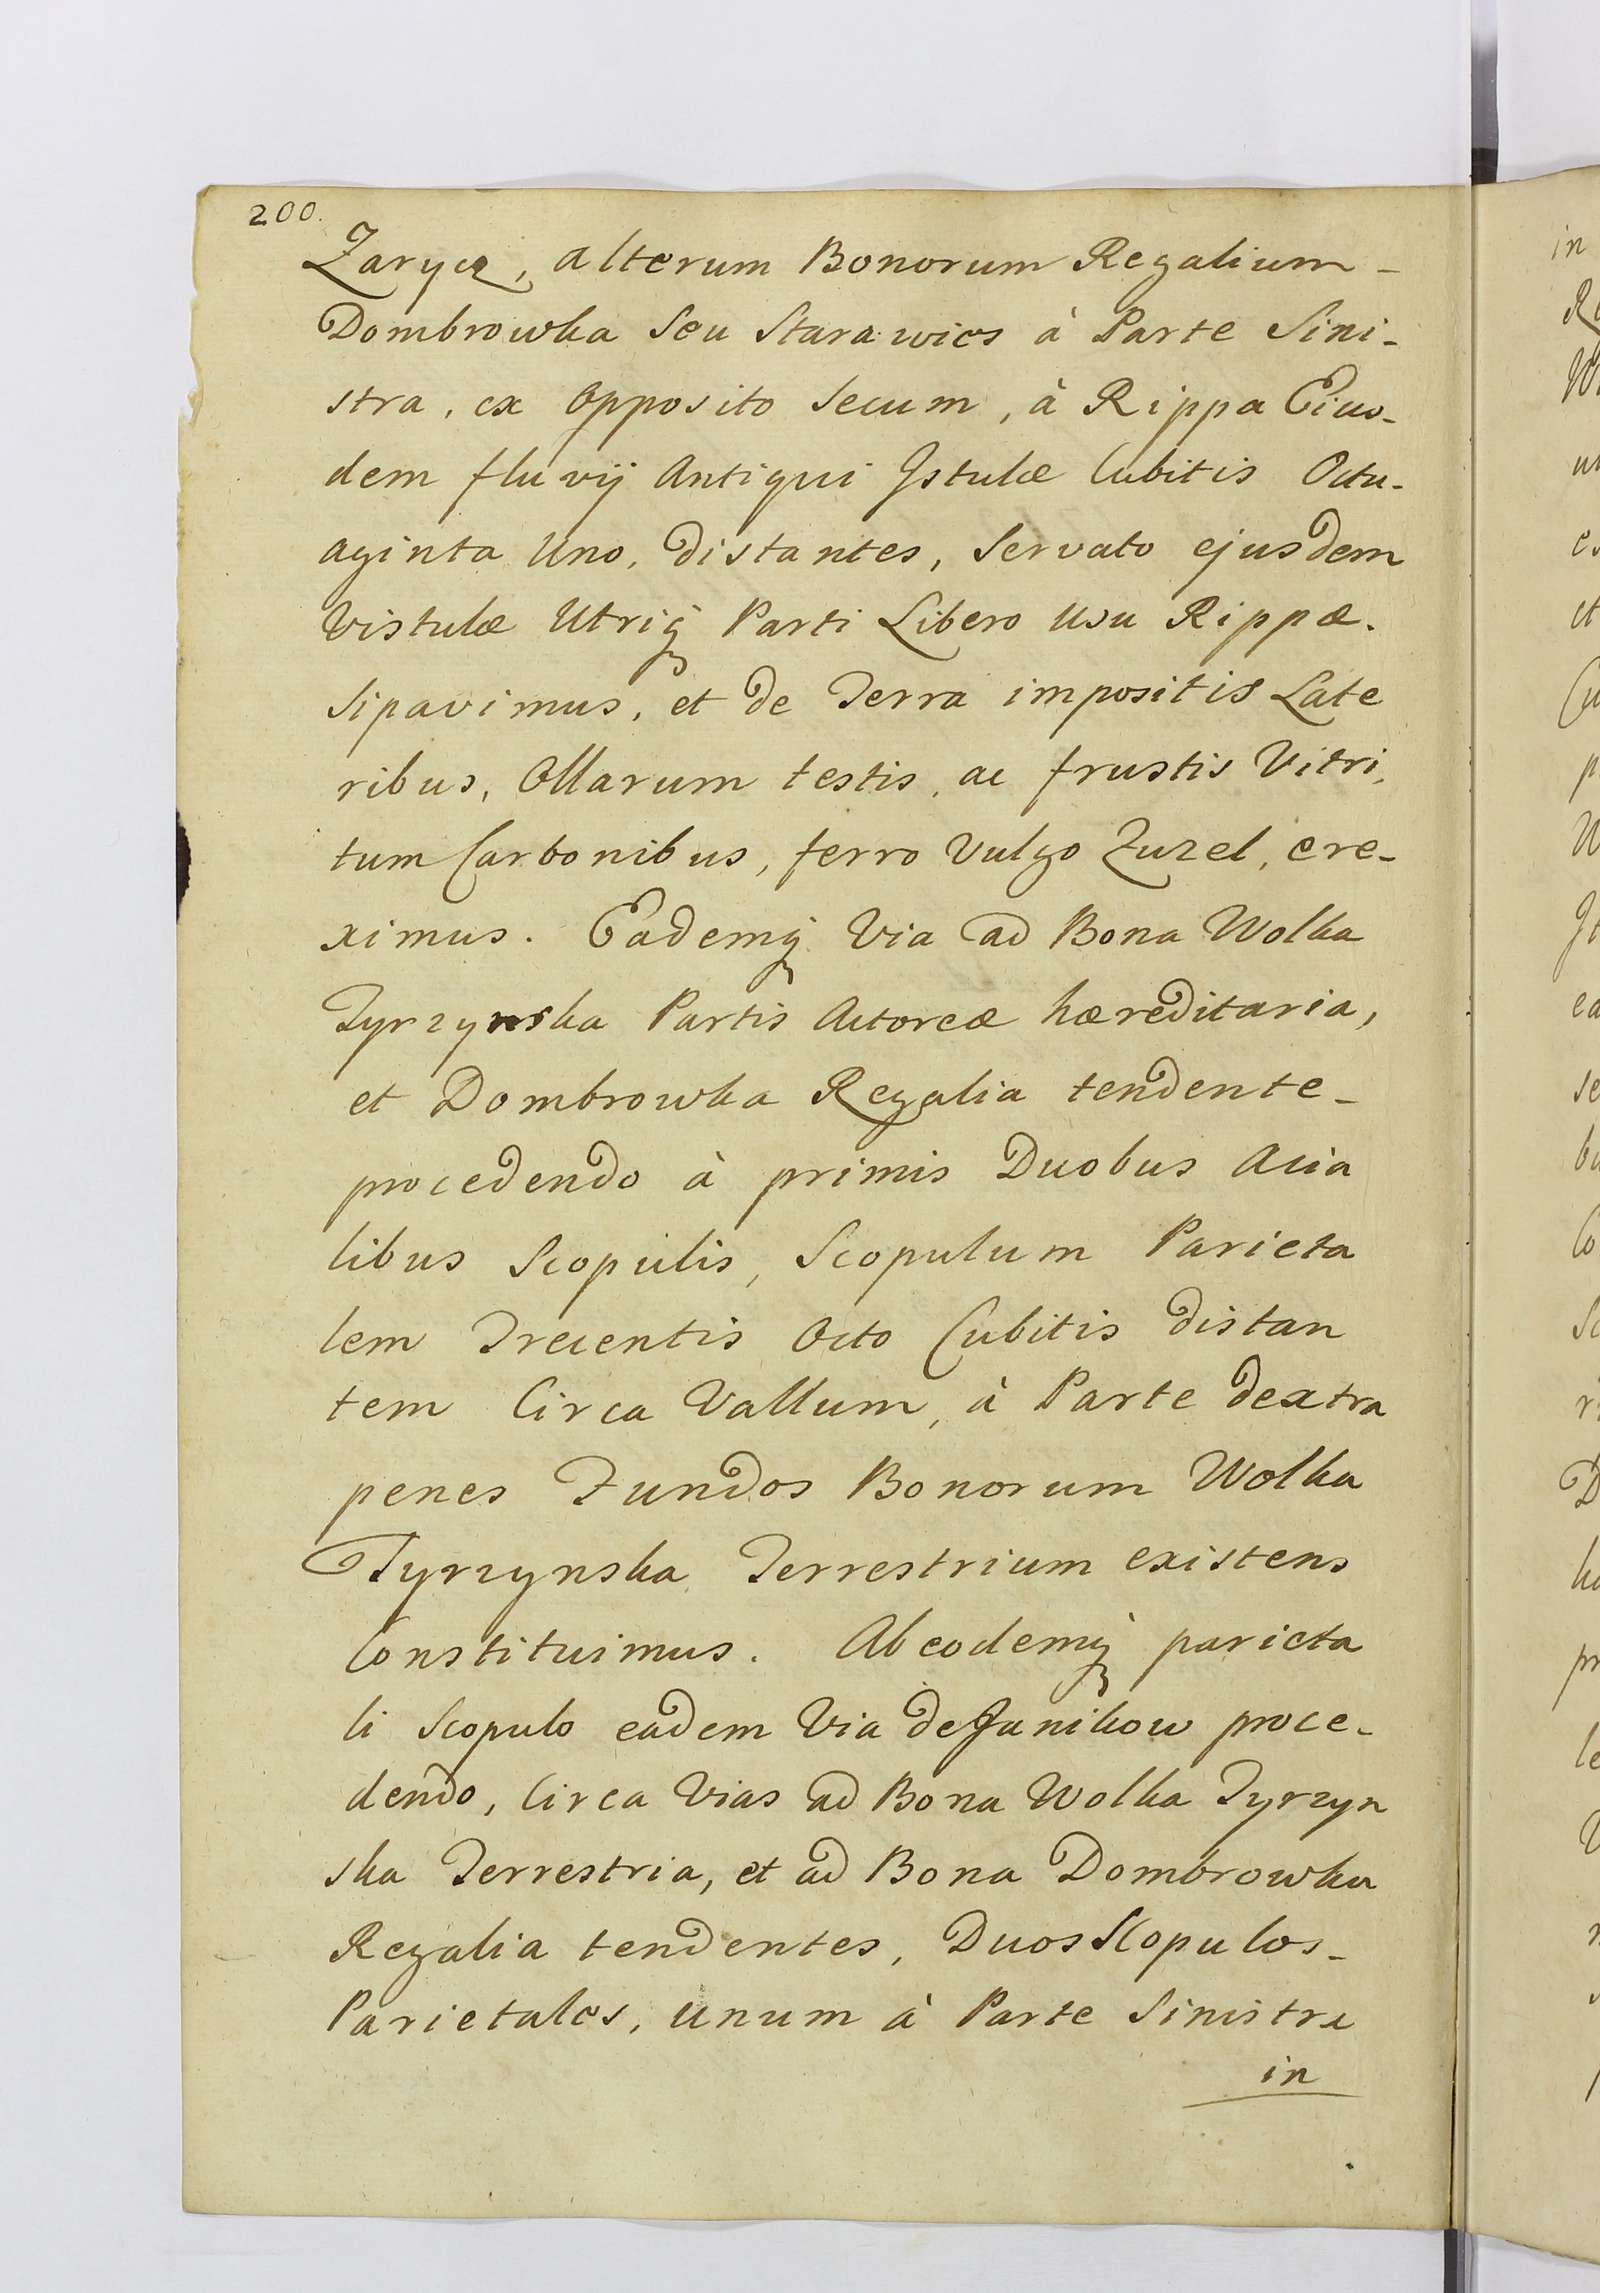 200.
Zarycz, alterum Bonorum Regalium -
Dombrowka Seu Stara wies à Parte Sini-
stra, ex Opposito Secum, à Rippa Eius-
dem fluvij Antiqui Istulæ Cubitis Octu-
aginta Uno, distantes, Servato ejusdem
Vistulæ Utriq Parti Libero Usu Rippæ.
Sipavimus, et de Terra impositis Late
ribus, Ollarum testis, ac frustis Vitri,
tum Carbonibus, ferro Vulgo Zuzel, ere-
ximus. Eademq Via ad Bona Wolka
Tyrzynska Partis Actoreæ hæreditaria,
et Dombrowka Regalia tendente -
procedendo à primis Duobus Acia
libus Scopulis, Scopulum Parieta
lem Trecentis Octo Cubitis distan
tem Circa Vallum, à Parte dextra
penes Fundos Bonorum Wolka
Tyrzynska Terrestrium existens
Constituimus. Ab eodemq parieta
li Scopulo eadem Via de Janikow proce-
dendo, Circa Vias ad Bona Wolka Tyrzyn
ska Terrestria, et ad Bona Dombrowka
Regalia tendentes, Duos Scopulos -
Parietales, unum à Parte Sinistra
in
in